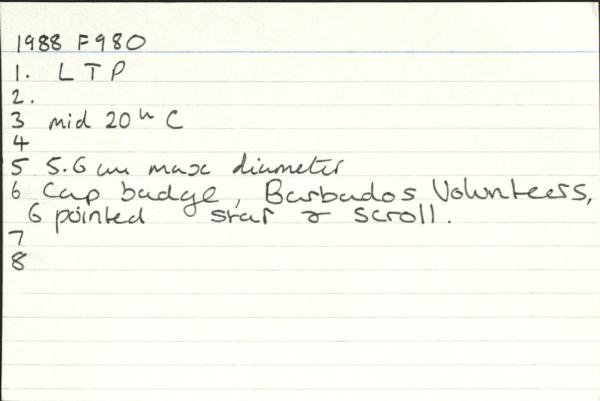 1988 F980
1. LTP
2.
3 mid 20th C
4
5 5.6 cm max diameter
6 Cap badge, Barbados Volunteers,
6 pointed star & scroll.
7
8